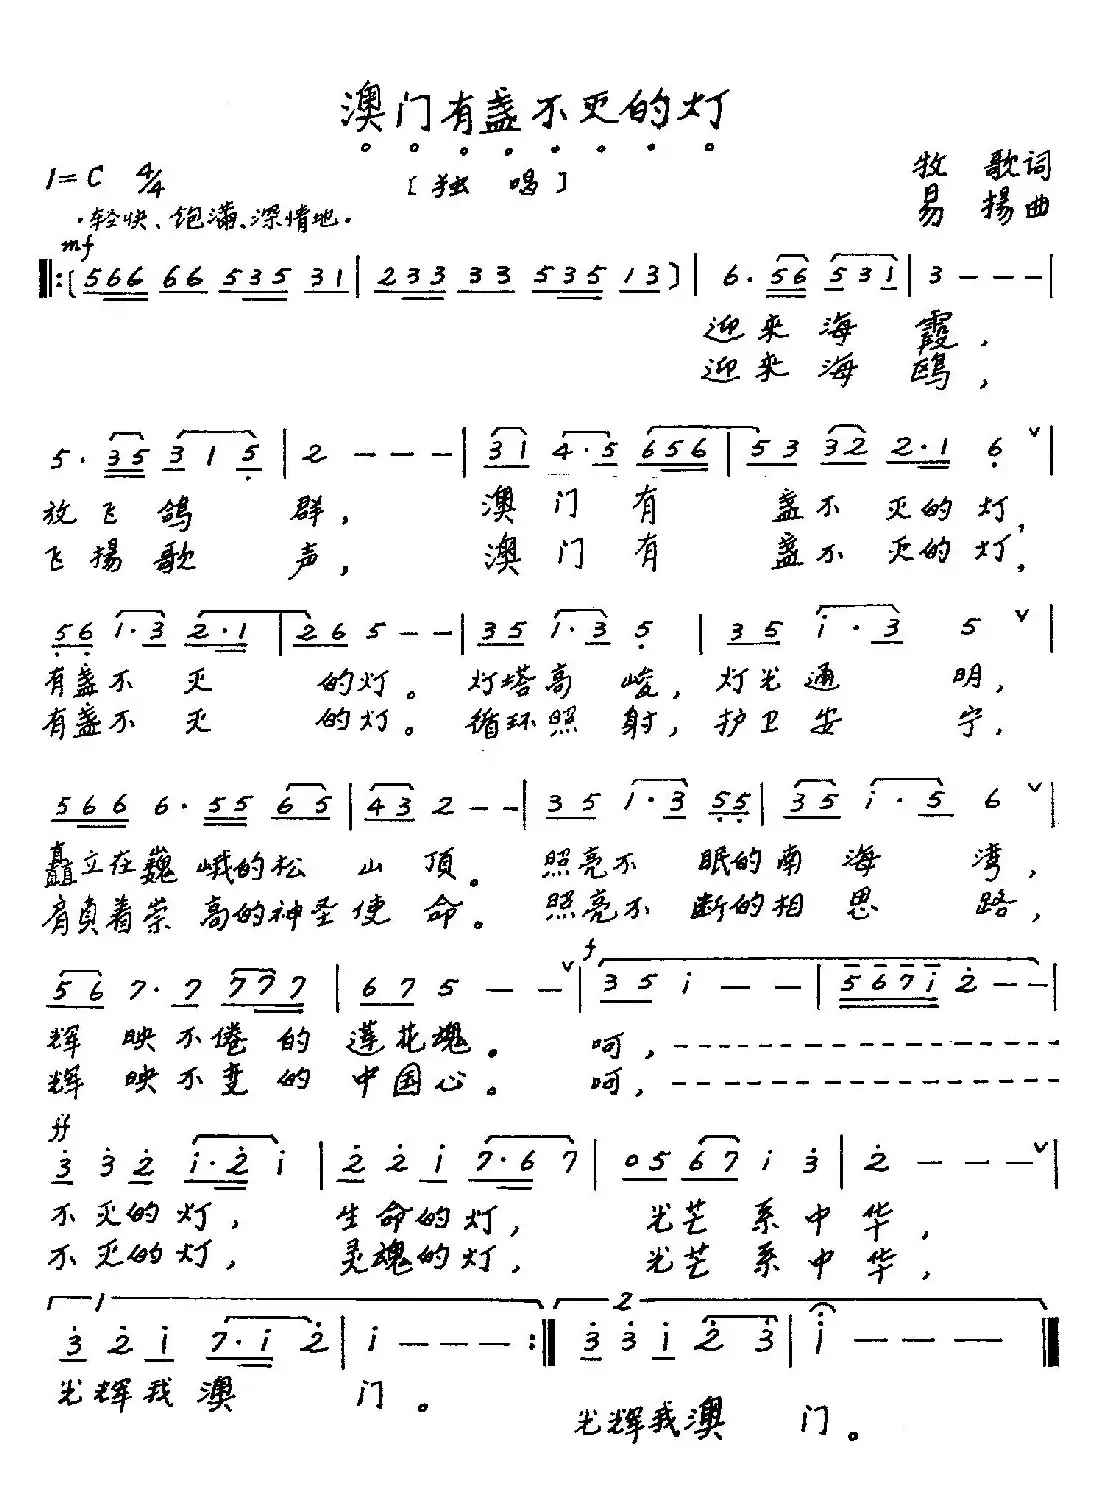 澳门有盏不灭的灯
1=C 4/4
[独 唱]
牧 歌词
·轻快、饱满、深情地·
易 揚曲
mf
‖:(566 66 535 31 | 233 33 535 13) | 6· 56 531 | 3 - - - |
迎来海 霞，
迎来海 鸥，
5· 35 315 | 2 - - - | 31 4·5 656 | 53 32 2·1 6 ∨ |
放飞鸽 群， 澳门有 盏不灭的灯，
飞揚歌 声， 澳门有 盏不灭的灯，
56 1·3 2·1 | 26 5 - - | 35 1·3 5 | 35 i·3 5 ∨ |
有盏不灭 的灯。灯塔高峻，灯光通 明，
有盏不灭 的灯。循环照射，护卫安 宁，
566 6·55 65 | 43 2 - - | 35 1·3 55 | 35 i·5 6 ∨ |
矗立在巍峨的松山顶。照亮不眠的南海湾，
肩负着崇高的神圣使命。照亮不断的相思路，
56 7·7 777 | 67 5 - - ∨ | f 35 i - - | 567i 2 - - |
辉映不倦的莲花魂。呵，- - - - - - - - - - - -
辉映不变的中国心。呵，- - - - - - - - - - - -
ff
3 3 2 i·2 i | 2 2 i 7·6 7 | 05 67 i 3 | 2 - - - ∨ |
不灭的灯，生命的灯，光芒系中华，
不灭的灯，灵魂的灯，光芒系中华，
1 2
3 2 i 7·i 2 | i - - - :‖ 3 3 i 2 3 | i - - - ‖
光辉我澳 门。
光辉我澳 门。